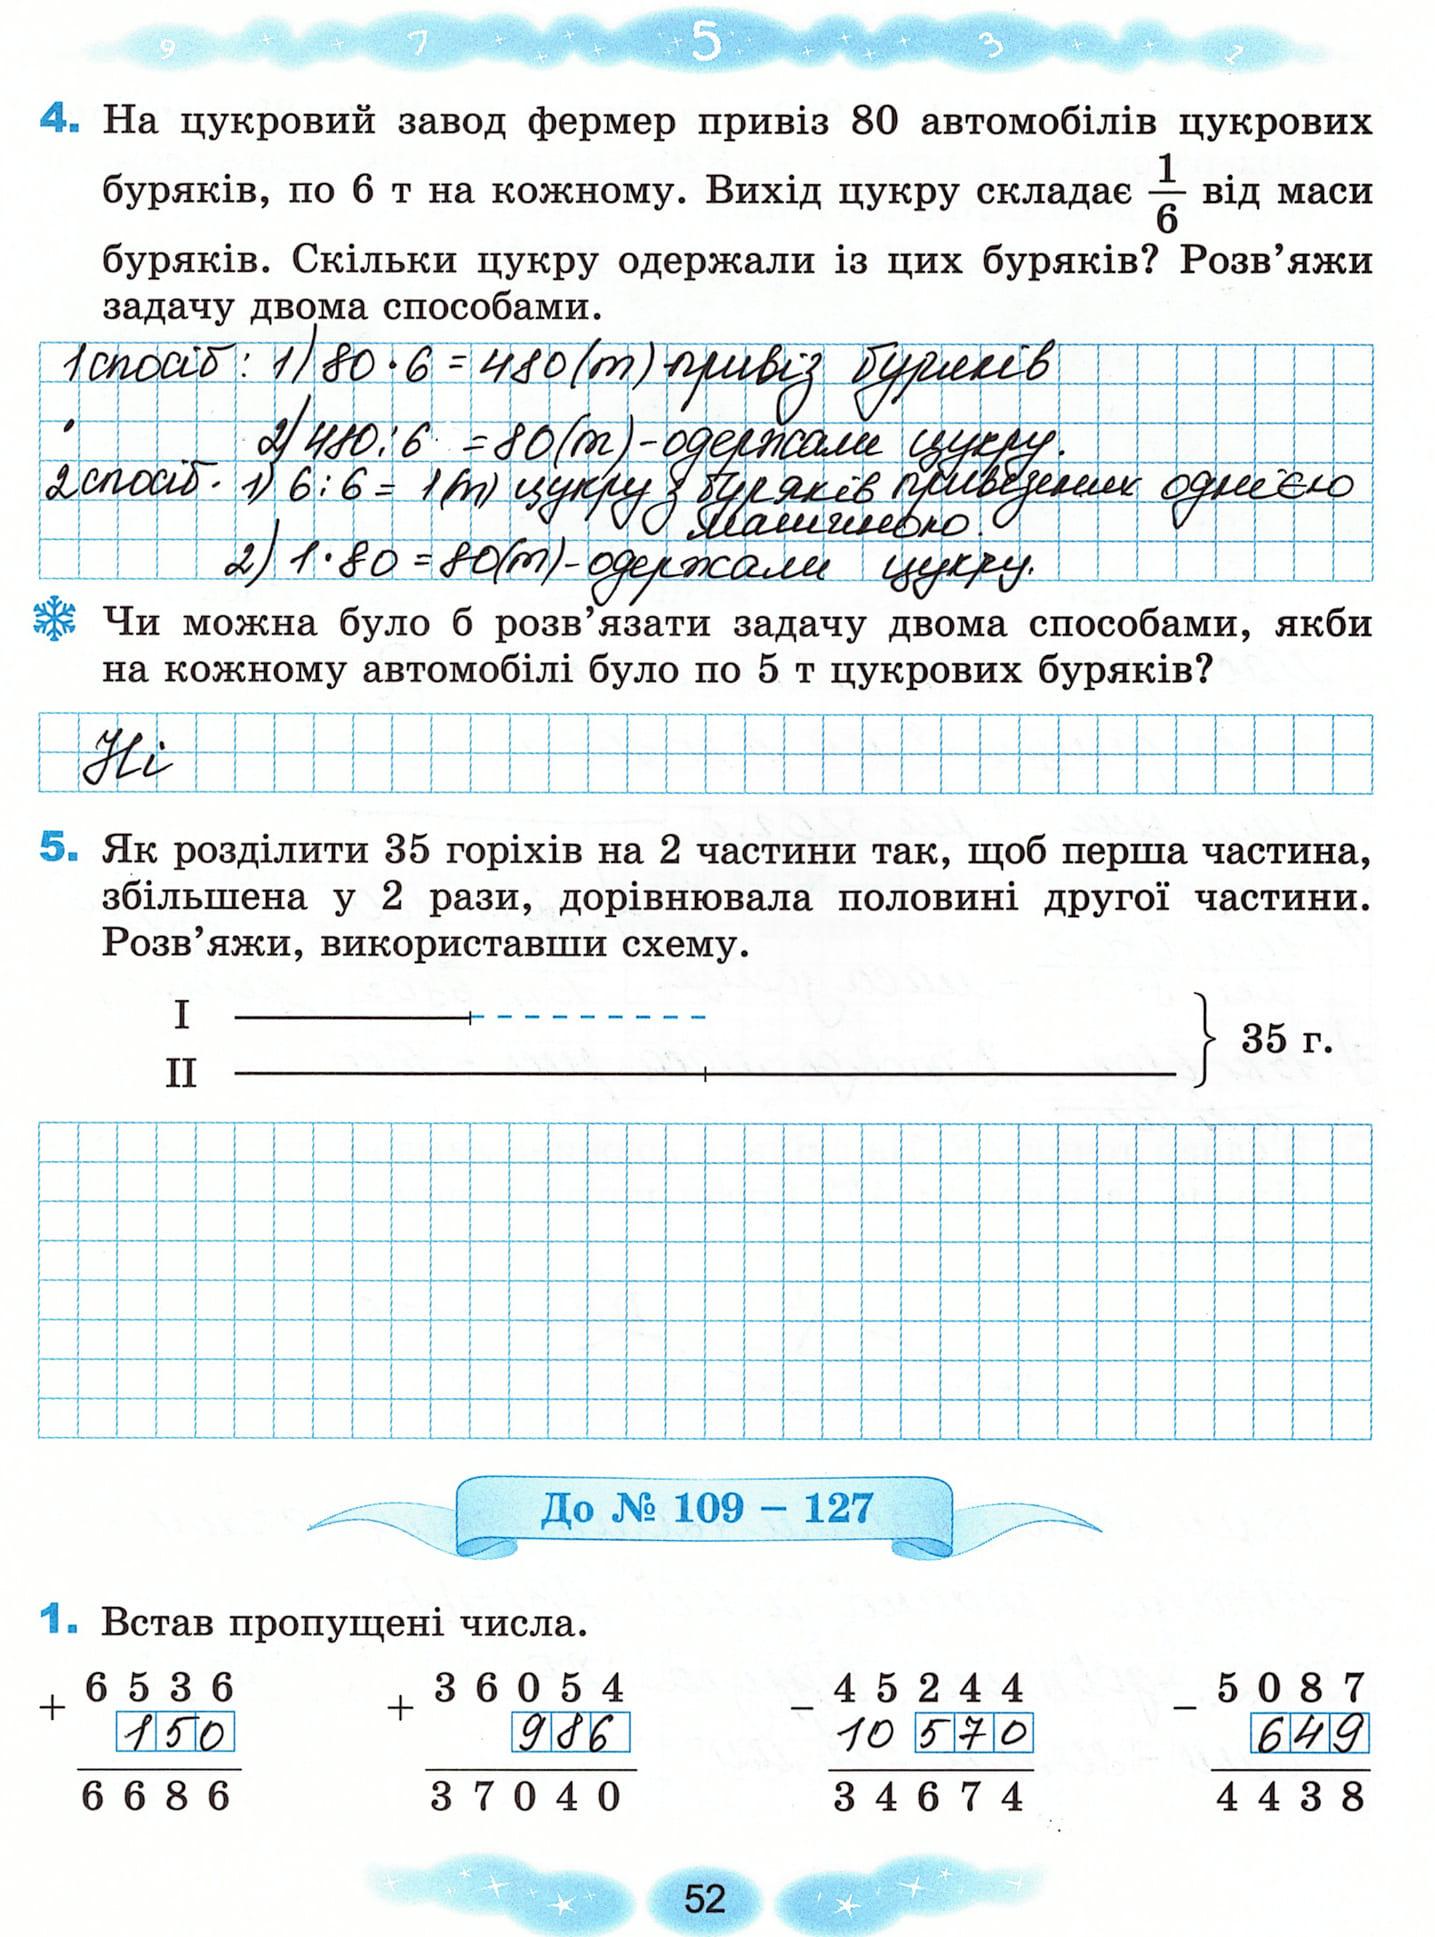 9 7 5 3 1
4. На цукровий завод фермер привіз 80 автомобілів цукрових
буряків, по 6 т на кожному. Вихід цукру складає 1/6 від маси
буряків. Скільки цукру одержали із цих буряків? Розв’яжи
задачу двома способами.
1 спосіб: 1) 80 · 6 = 480 (т) привіз буряків
2) 480 : 6 = 80 (т) - одержали цукру.
2 спосіб. 1) 6 : 6 = 1 (т) цукру з буряків привезених однією
машиною.
2) 1 · 80 = 80 (т) - одержали цукру.
Чи можна було б розв’язати задачу двома способами, якби
на кожному автомобілі було по 5 т цукрових буряків?
Ні
5. Як розділити 35 горіхів на 2 частини так, щоб перша частина,
збільшена у 2 рази, дорівнювала половині другої частини.
Розв’яжи, використавши схему.
I
II
35 г.
До № 109 – 127
1. Встав пропущені числа.
+ 6536 + 36054 − 45244 − 5087
150 986 10 570 649
6686 37040 34674 4438
52